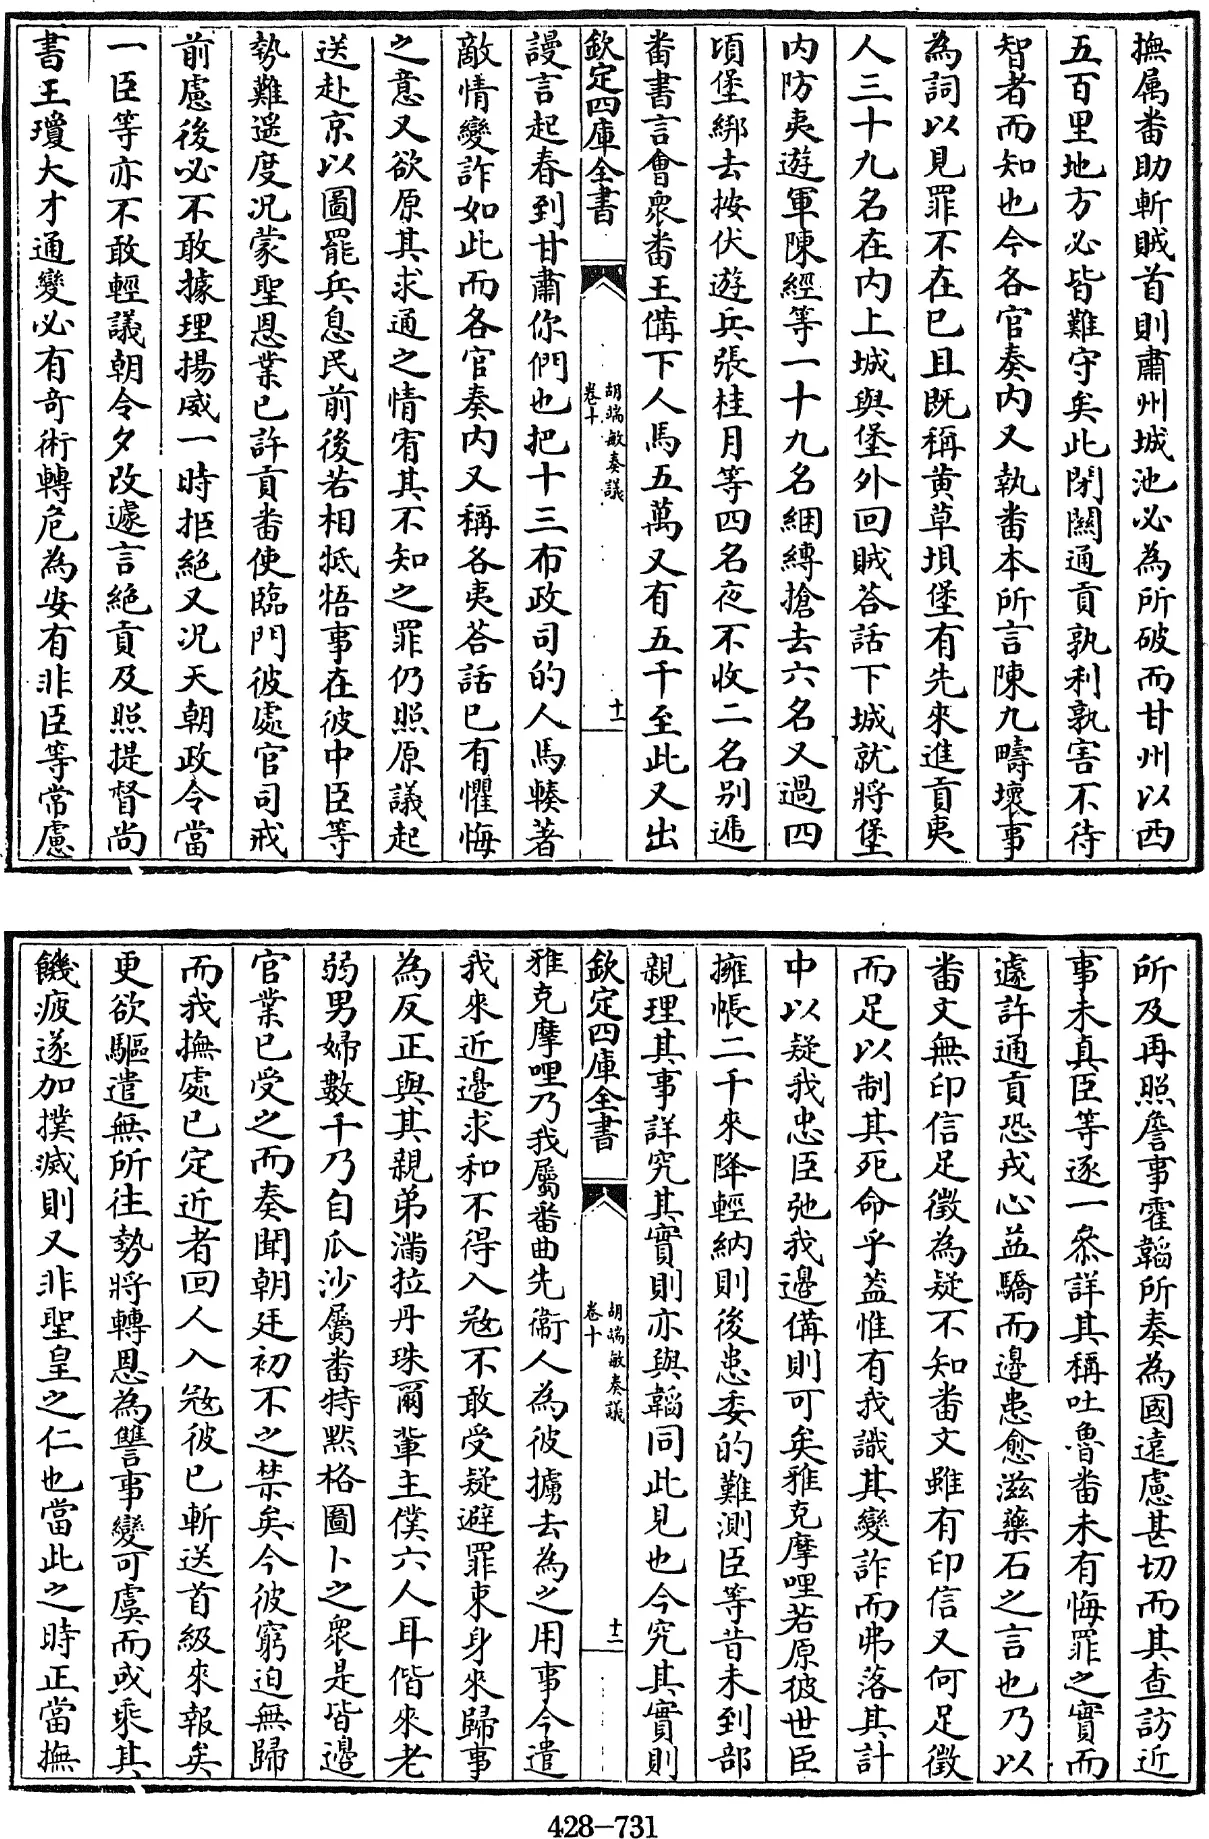 撫属畨助斬賊首則肅州城池必為所破而甘州以西
五百里地方必皆難守矣此閉闗通貢孰利孰害不待
智者而知也今各官奏内又執畨本所言陳九疇壊事
為詞以見罪不在巳且既稱黄草垻堡有先來進貢夷
人三十九名在内上城與堡外回賊荅話下城就將堡
内防夷遊軍陳經等一十九名綑縳搶去六名又過四
頃堡綁去按伏遊兵張桂月等四名夜不收二名别遞
畨書言會衆畨王備下人馬五萬又有五千至此又出
欽定四庫全書
胡端敏奏議
卷十
十一
謾言起春到甘肅你們也把十三布政司的人馬輳著
敵情變詐如此而各官奏内又稱各夷荅話已有懼悔
之意又欲原其求通之情宥其不知之罪仍照原議起
送赴京以圖罷兵息民前後若相牴牾事在彼中臣等
勢難遥度况蒙聖恩業已許貢畨使臨門彼處官司戒
前慮後必不敢據理揚威一時拒絶又况天朝政令當
一臣等亦不敢輕議朝令夕改遽言絶貢及照提督尚
書王瓊大才通變必有奇術轉危為安有非臣等常慮
所及再照詹事霍韜所奏為國逺慮甚切而其查訪近
事未真臣等逐一叅詳其稱吐魯畨未有悔罪之實而
遽許通貢恐戎心益驕而邊患愈滋藥石之言也乃以
畨文無印信足徴為疑不知畨文雖有印信又何足徴
而足以制其死命乎葢惟有我識其變詐而弗落其計
中以疑我忠臣弛我邊備則可矣雅克摩哩若原彼世臣
擁帳二千來降輕納則後患委的難測臣等昔未到部
親理其事詳究其實則亦與韜同此見也今究其實則
欽定四庫全書
胡端敏奏議
卷十
十二
雅克摩哩乃我屬畨曲先衞人為彼擄去為之用事今遣
我來近邊求和不得入寇不敢受疑避罪束身來歸事
為反正與其親弟滿拉丹珠爾輩主僕六人耳偕來老
弱男婦數千乃自瓜沙屬畨特默格圖卜之衆是皆邊
官業已受之而奏聞朝廷初不之禁矣今彼窮迫無歸
而我撫處已定近者回人入寇彼已斬送首級來報矣
更欲驅遣無所往勢將轉恩為讐事變可虞而或乘其
饑疲遂加撲滅則又非聖皇之仁也當此之時正當撫
428-731